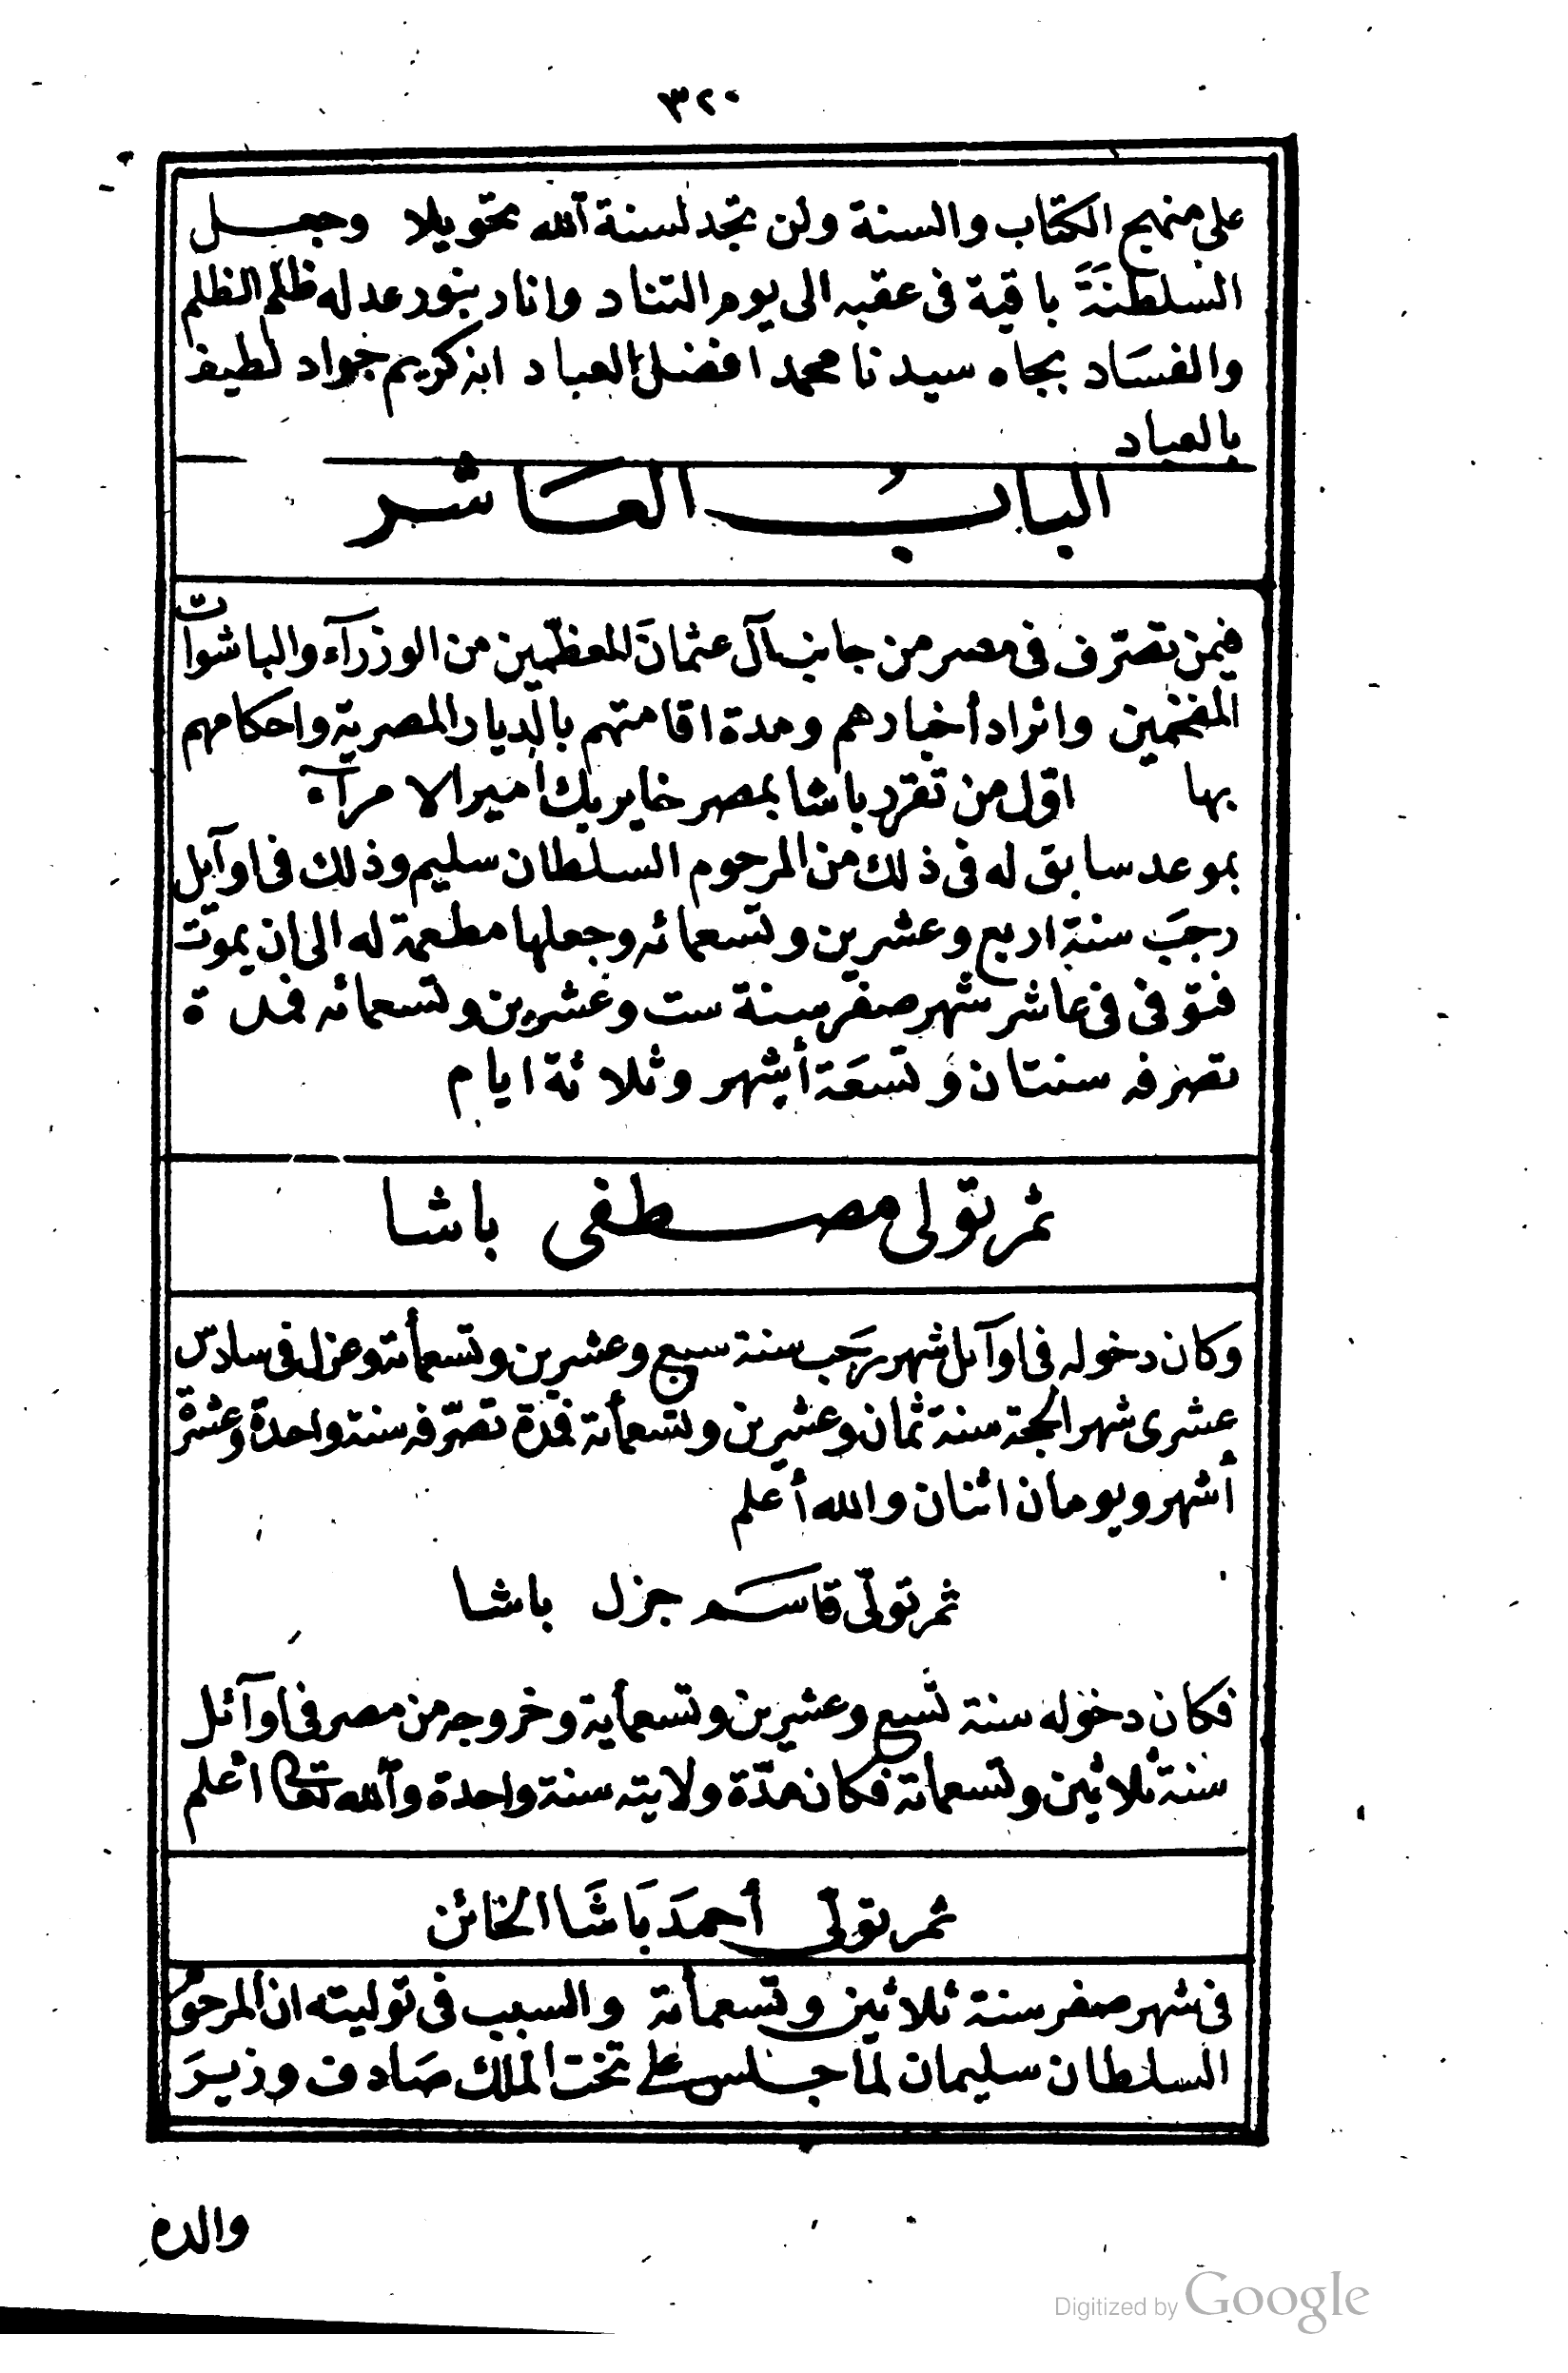 ٣٢٠
على منهج الكتاب والسنة ولن تجد لسنة الله تحويلا وجعل
السلطنة باقية فى عقبه الى يوم التناد وانار بنور عدله ظلم الظلم
والفساد بجاه سيدنا محمد افضل العباد انه كريم جواد لطيف
بالعباد
الباب العاشر
فيمن تصرّف فى مصر من جانب آل عثمان المعظمين من الوزرآء والباشوات
المفخمين وايراد أخبارهم ومدة اقامتهم بالديار المصرية واحكامهم
بها اوّل من تقرد باشا بمصر خاير بك امير الامرآء
بموعد سابق له فى ذلك من المرحوم السلطان سليم وذلك فى اوآيل
رجب سنة اربع وعشرين وتسعمائه وجعلها مطعمة له الى ان يموت
فتوفى فى عاشر شهر صفر سنة ست وعشرين وتسعمائه فمدة
تصرفه سنتان وتسعة أشهر وثلاثة ايام
ثم تولى مصطفى باشا
وكان دخوله فى اوآيل شهر رجب سنة سبع وعشرين وتسعمأئة وعزل فى سادس
عشرى شهر الحجة سنة ثمان وعشرين وتسعمأئة فمدة تصرّفه سنة واحدة وعشرة
أشهر ويومان اثنان والله أعلم
ثم تولّى قاسم جزل باشا
فكان دخوله سنة تسع وعشرين وتسعمأية وخروجه من مصر فى اوآئل
سنة ثلاثين وتسعمائة فكان مدّة ولايته سنة واحدة والله تعالى اعلم
ثم تولّى أحمد باشا الخائن
فى شهر صفر سنة ثلاثين وتسعمأئة والسبب فى توليته ان المرحوم
السلطان سليمان لما جلس على تخت الملك صادف وزير
والده
Digitized by Google